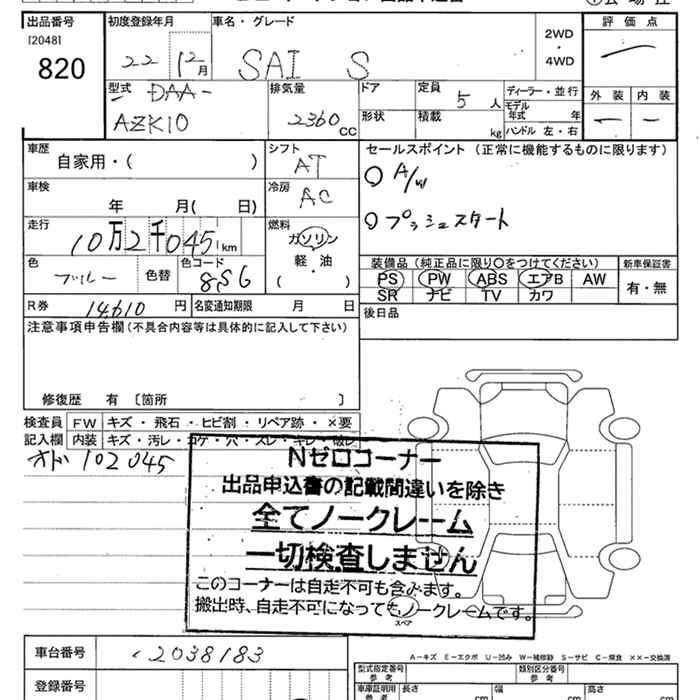 出品番号
[2048]
820
初度登録年月
22 12月
車名・グレード
SAI S
2WD
・
4WD
評価点
外装 内装
型式 DAA-
AZK10
排気量
2360 CC
ドア
形状
定員 5 人
積載 kg
ディーラー・並行
モデル年式 年
ハンドル 左・右
車歴
自家用・( )
シフト
AT
セールスポイント (正常に機能するものに限ります)
○ A/W
○ プッシュスタート
車検
年 月( 日)
冷房
AC
走行
10万2千045 km
燃料
ガソリン
軽・油
( )
色
ブルー
色替
色コード
8S6
装備品 (純正品に限り○をつけてください)
PS PW ABS エアB AW
SR ナビ TV カワ
新車保証書
有・無
R券 14610 円
名変通知期限 月 日
後日品
注意事項申告欄 (不具合内容等は具体的に記入して下さい)
修復歴 有 〔箇所 〕
検査員記入欄
FW キズ・飛石・ヒビ割・リペア跡・×要
内装 キズ・汚レ・コゲ・穴・スレ・キレ・破レ
オド 102045
Nゼロコーナー
出品申込書の記載間違いを除き
全てノークレーム
一切検査しません
このコーナーは自走不可も含みます。
搬出時、自走不可になってもノークレームです。
スペア
車台番号 2038183
A-キズ E-エクボ U-凹み W-補修跡 S-サビ C-腐食 ××-交換済
型式指定番号 参考
類別区分番号 参考
登録番号
車庫証明用 参考
長さ cm
幅 cm
高さ cm